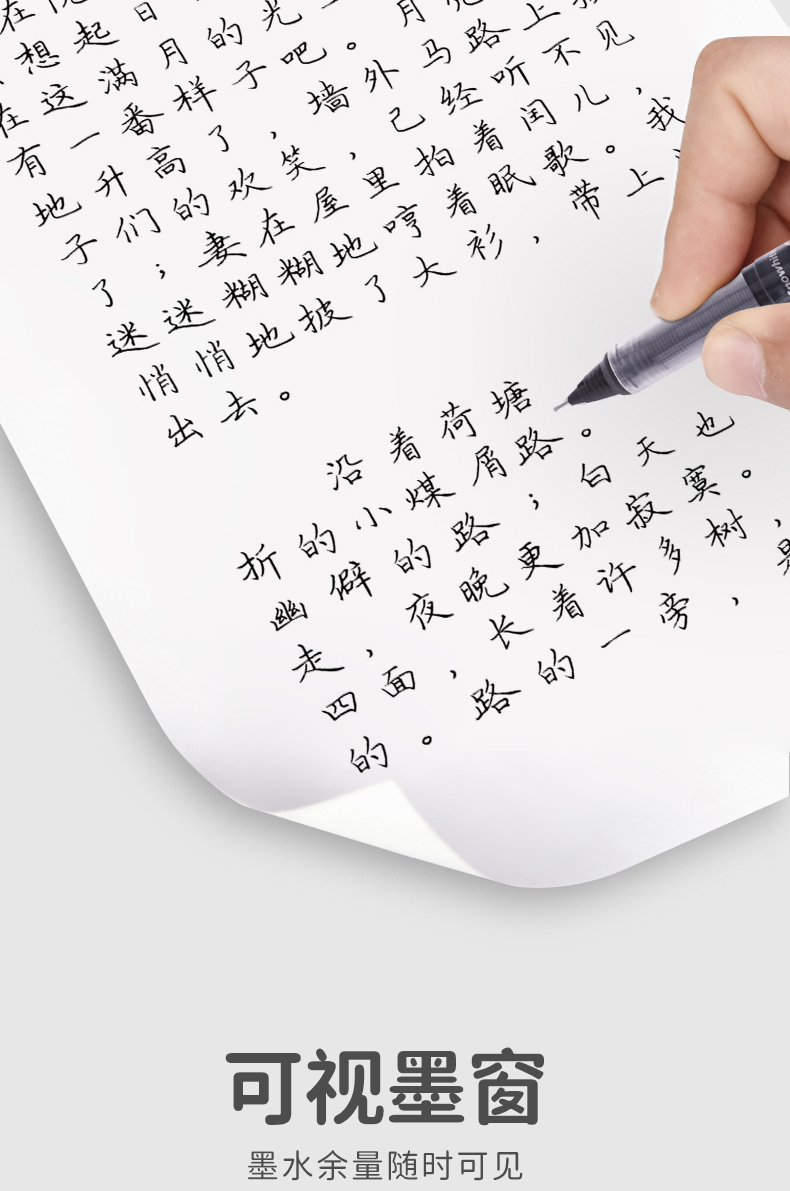 在
想起日
在这满月的光
有一番样子吧。月
地升高了，墙外马路上
子们的欢笑，已经听不见
了；妻在屋里拍着闰儿，
迷迷糊糊地哼着眠歌。我
悄悄地披了大衫，带上
出去。
沿着荷塘
折的小煤屑路。
幽僻的路；白天也
走，夜晚更加寂寞。
四面，长着许多树，
的。路的一旁，
可视墨窗
墨水余量随时可见